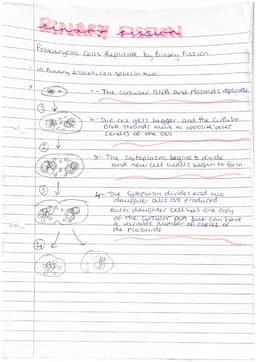 BINARY FISSION
Prokaryotic Cells Replicate by Binary Fission
In Binary fission, cell splits in two
1- The circular DNA and plasmids replicate
①
2- The cell gets bigger and the circular
DNA strands move to opposite 'poles'
(ends) of the cell
②
3- The cytoplasm begins to divide
and new cell walls begin to form
③
4- The cytoplasm divides and two
daughter cells are produced
each daughter cell has one copy
of the circular DNA but can have
a variable number of copies of
the plasmids
④